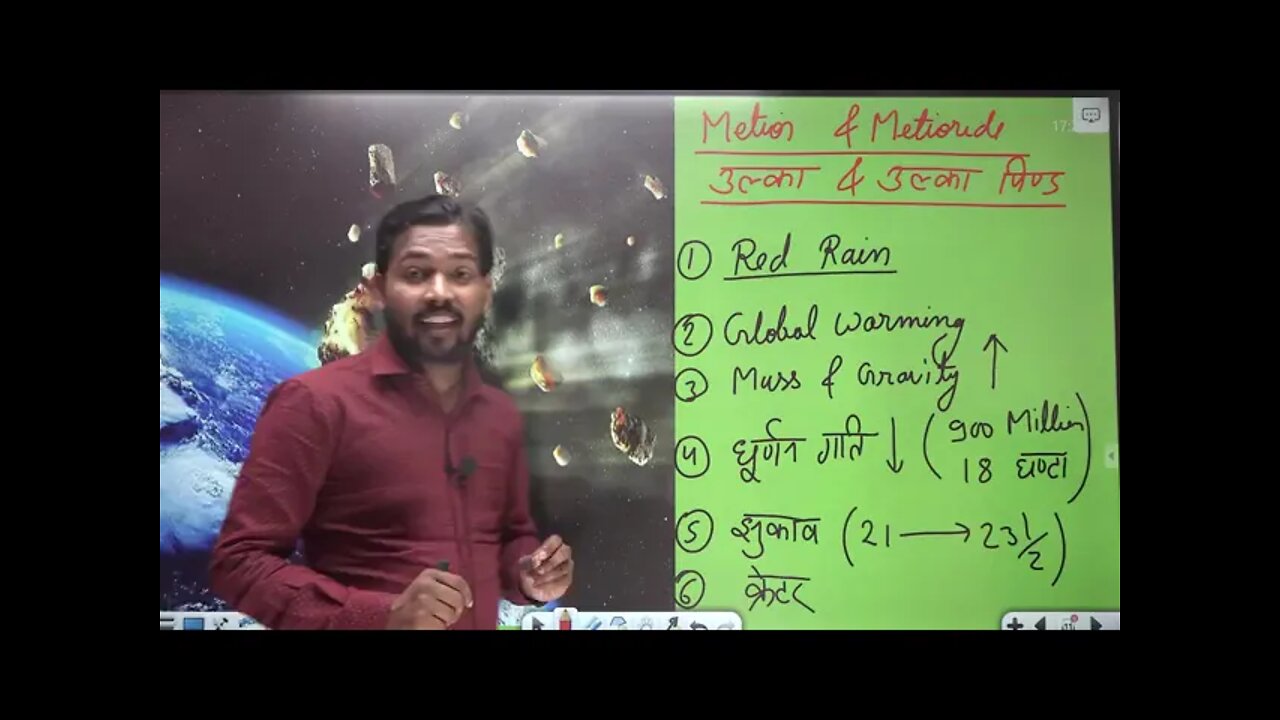 Metior & Metioride
उल्का & उल्का पिण्ड
① Red Rain
② Global warming
③ Mass & Gravity ↑
④ घूर्णन गति ↓ (900 Million
18 घण्टा)
⑤ झुकाव (21 → 23 1/2)
⑥ क्रेटर